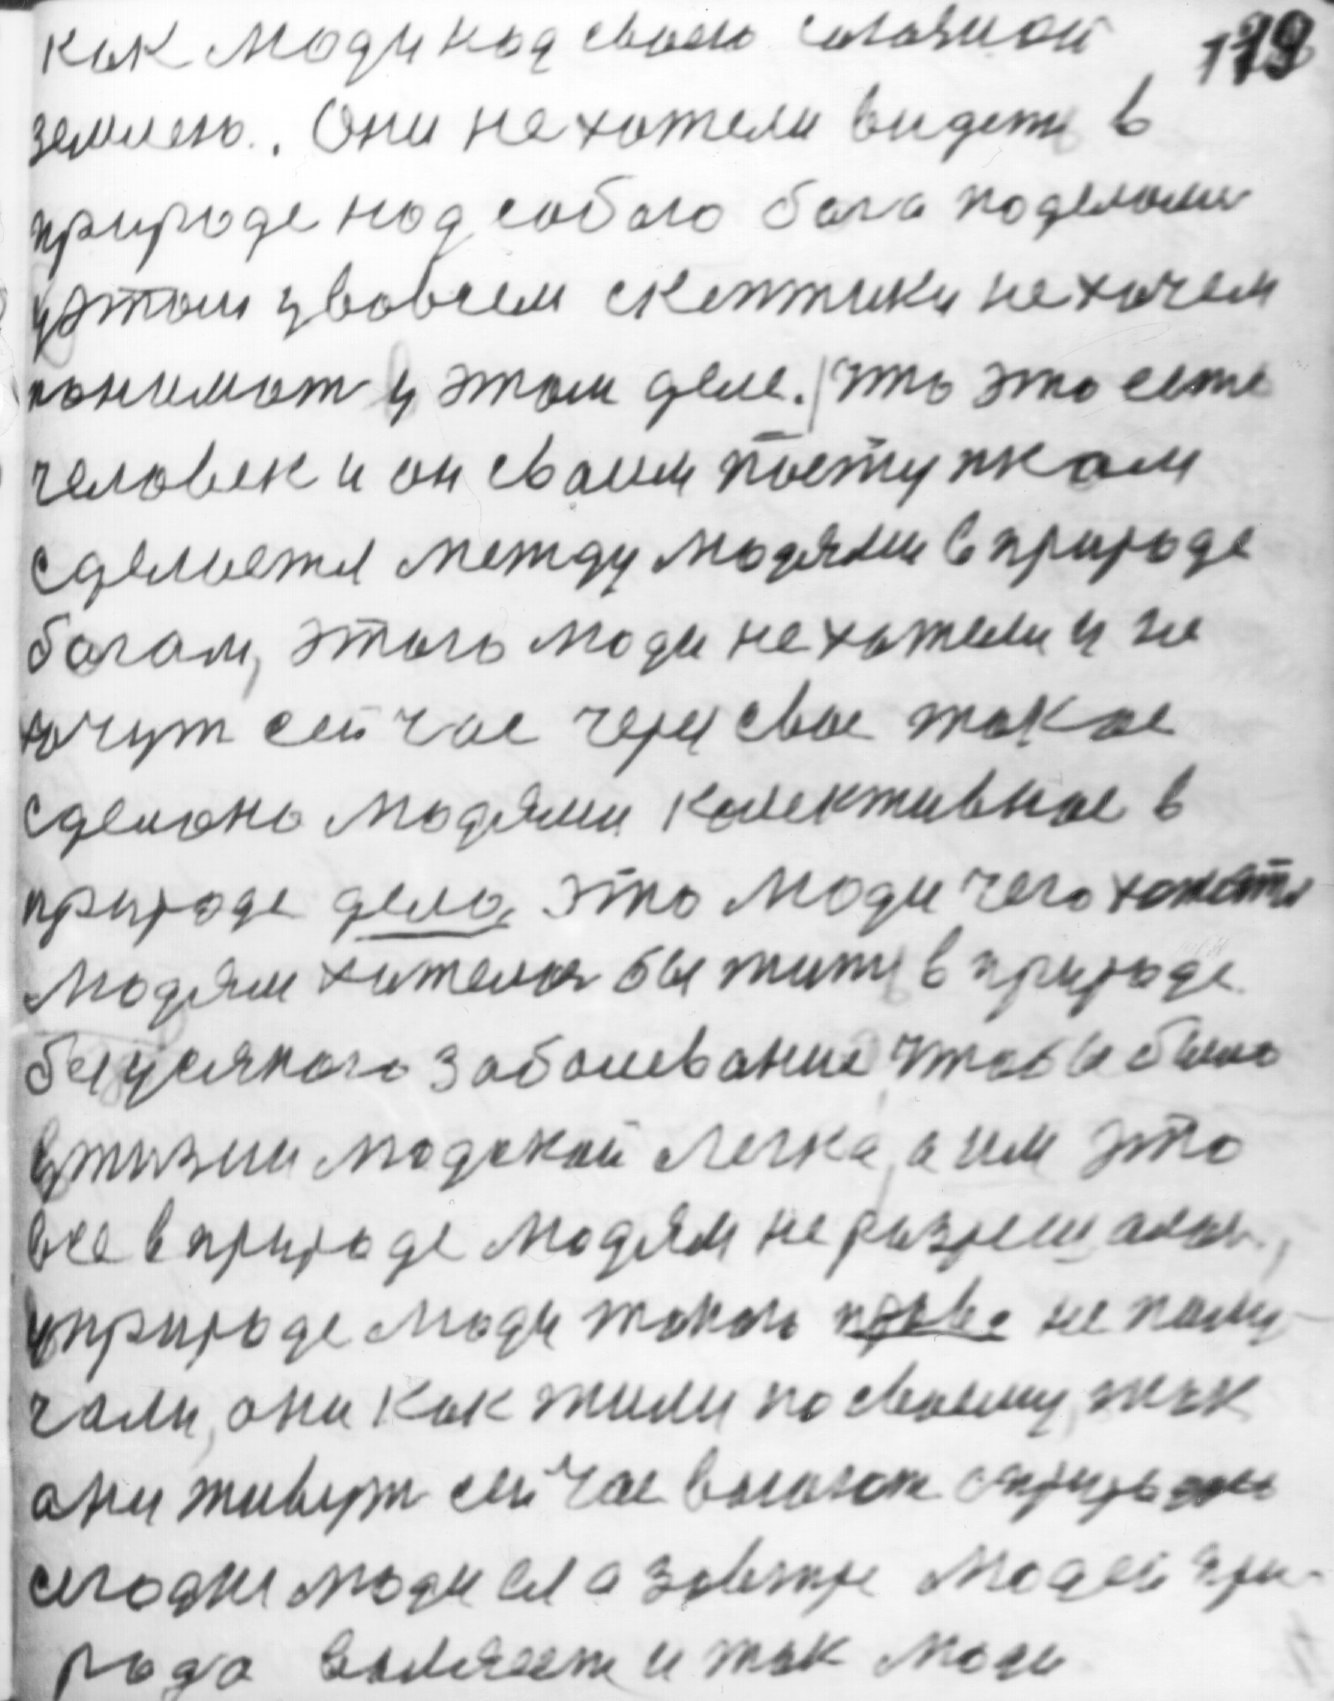 как люди над своею
119
землею. Они не хотели видеть в
природе над собою бога поделами
у этом у вовсем скептики не хочем
понимат у этом деле. / что это есть
человек и он своим поступкам
сделается между людями в природе
богам, этого люди не хотели и не
хочут сейчас через свое такое
сделано людями колективное в
природе дело, это люди чего
людям хотелося бы жить в природе
без усякого заболевание чтобы было
у жизни людской легка, а им это
все в природе людям не разрешалось,
у природе люди такого права не полу-
чали, они как жили по своему, так
они живут сейчас
сегодне люди а завтре людей при-
рода и так люди